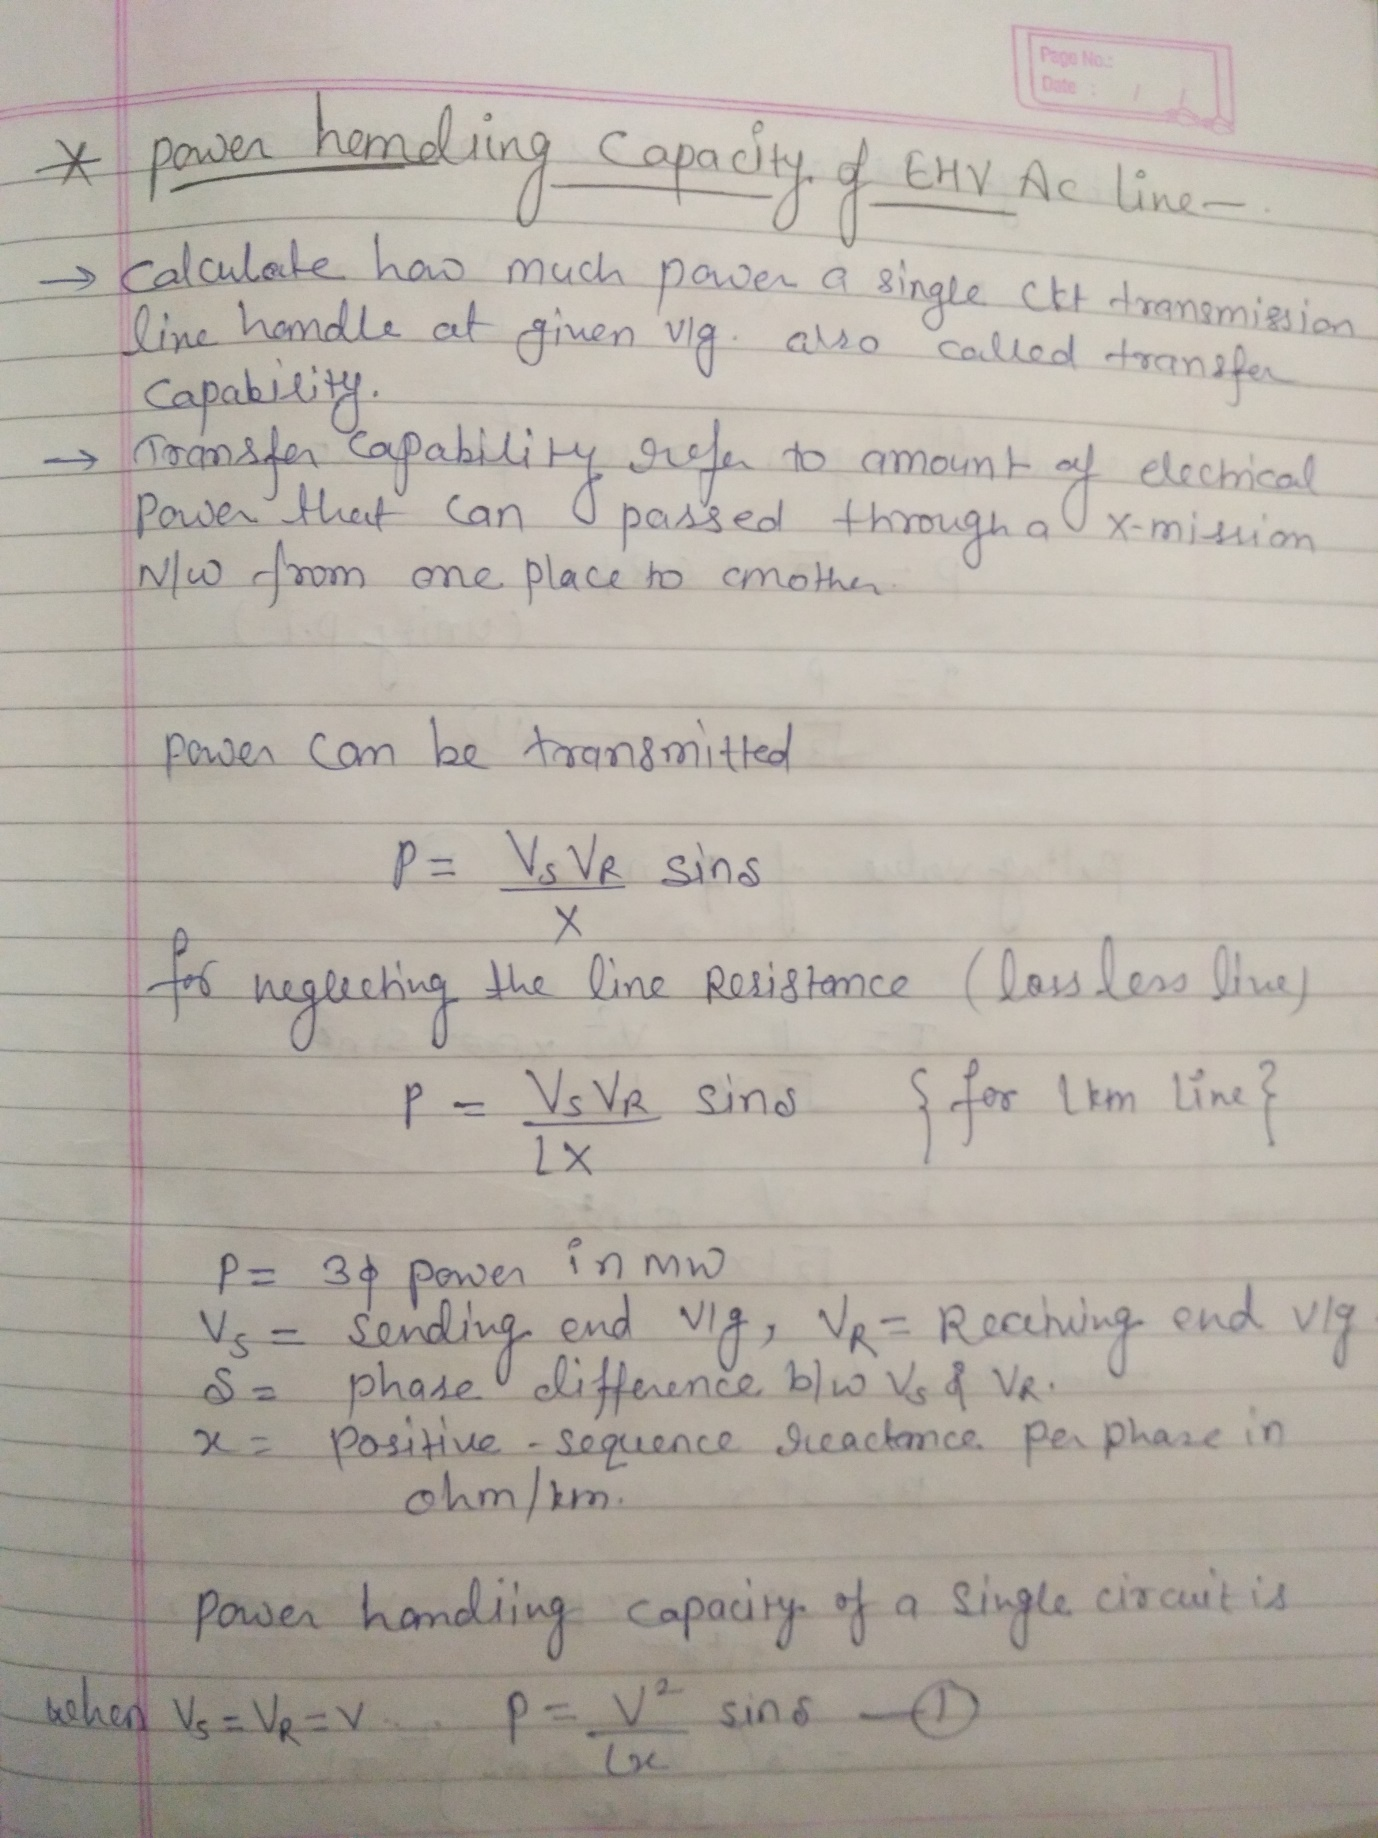 Page No.:
Date : / /
* power hemdling capacity of EHV AC line -
→ Calculate how much power a single ckt transmission
line handle at given v/g. also called transfer
capability.
→ Transfer capability refer to amount of electrical
power that can passed through a x-mission
N/W from one place to another.
power can be transmitted
P = VsVR sinδ
X
for neglecting the line Resistance (loss less line)
P = VsVR sinδ { for Lkm line }
LX
P = 3ϕ power in mw
Vs = sending end v/g, VR = Receiving end v/g
δ = phase difference b/w Vs & VR.
x = positive - sequence reactance per phase in
ohm/km.
power handling capacity of a single circuit is
when Vs = VR = V P = V² sinδ — ①
Lx